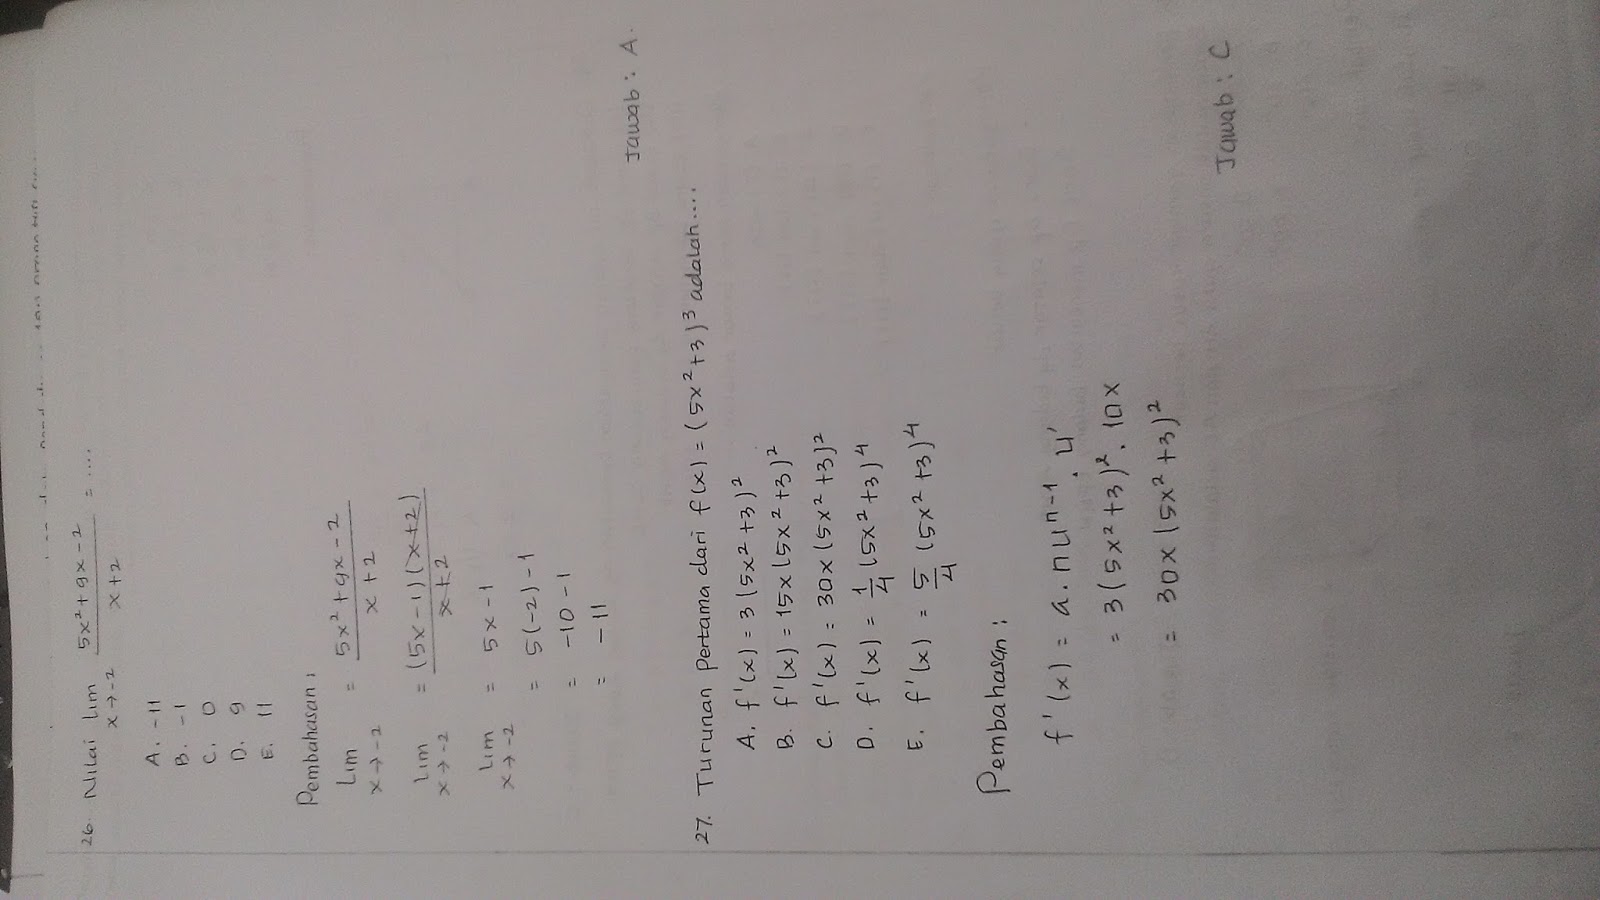 26. Nilai Lim 5x² + 9x - 2 / x + 2 = ....
x → -2
A. -11
B. -1
C. 0
D. 9
E. 11
Pembahasan:
Lim x → -2 = 5x² + 9x - 2 / x + 2
Lim x → -2 = (5x - 1)(x + 2) / x + 2
Lim x → -2 = 5x - 1
= 5(-2) - 1
= -10 - 1
= -11
Jawab : A.
27. Turunan Pertama dari f(x) = (5x² + 3)³ adalah....
A. f'(x) = 3(5x² + 3)²
B. f'(x) = 15x(5x² + 3)²
C. f'(x) = 30x(5x² + 3)²
D. f'(x) = 1/4 (5x² + 3)⁴
E. f'(x) = 5/4 (5x² + 3)⁴
Pembahasan:
f'(x) = a . nuⁿ⁻¹ . u'
= 3(5x² + 3)² . 10x
= 30x(5x² + 3)²
Jawab : C